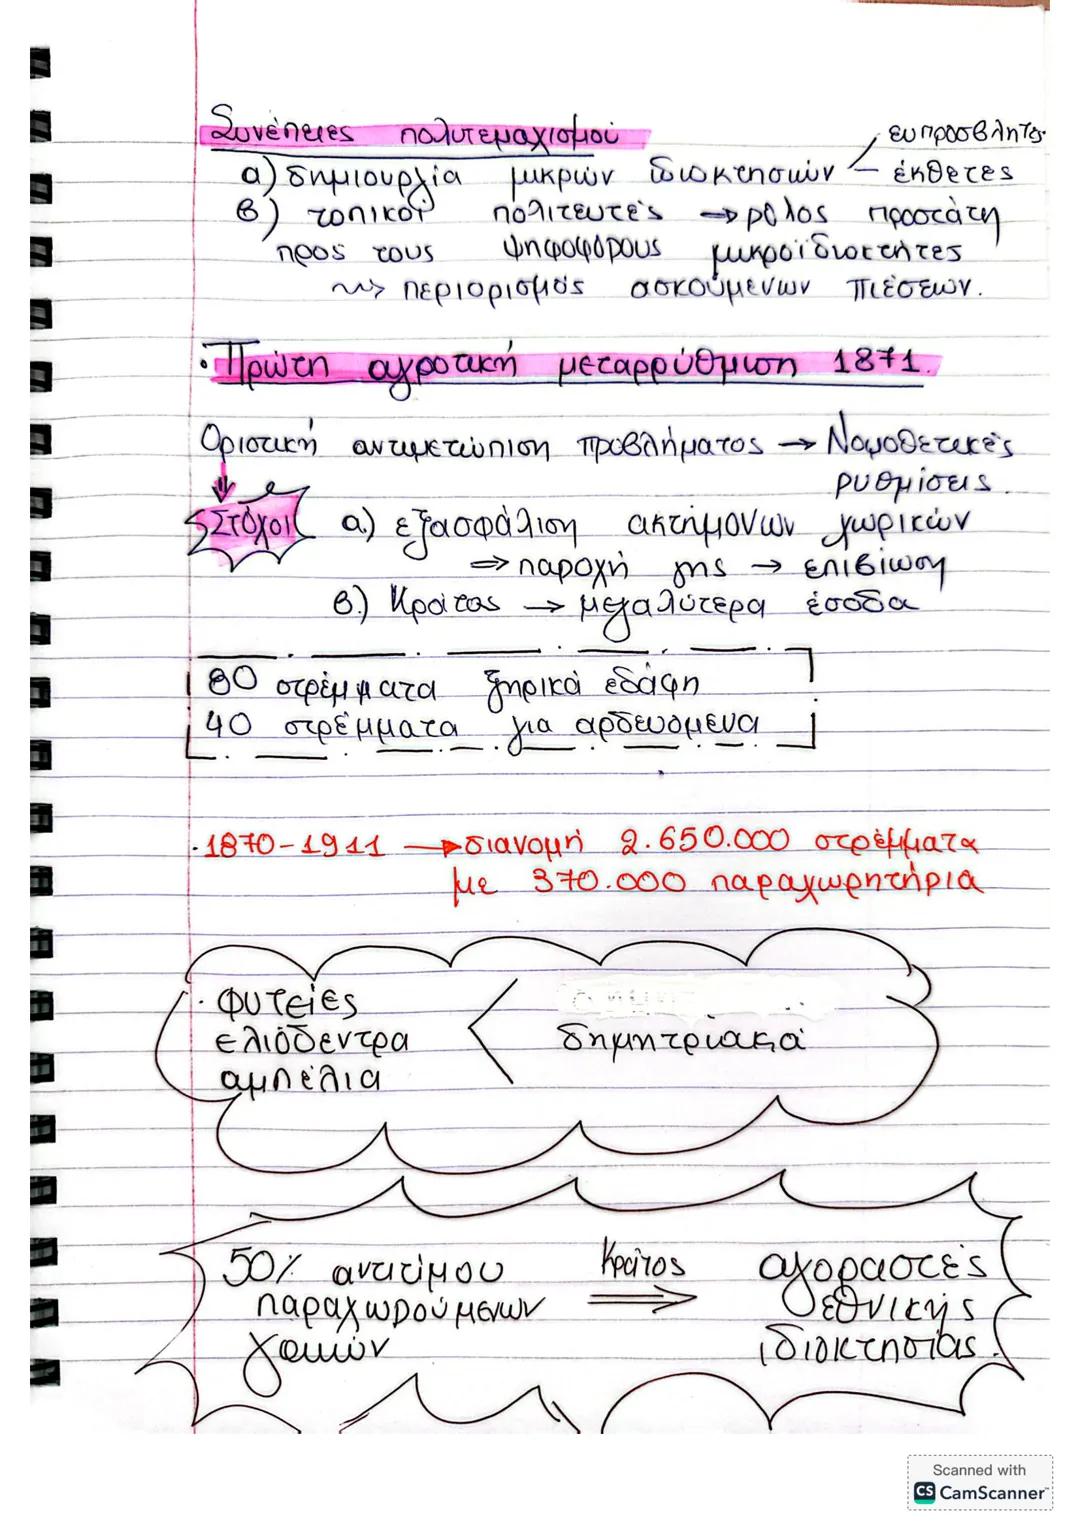 Συνέπειες πολυτεμαχισμού
ευπροσβλητες
α) δημιουργία μικρών ιδιοκτησιών έκθετες
β) τοπικοί πολιτευτές → ρόλος προστάτη
προς τους ψηφοφόρους μικροϊδιοκτήτες
⇝ περιορισμός ασκούμενων πιέσεων.
· Πρώτη αγροτική μεταρρύθμιση 1871.
Οριστική αντιμετώπιση προβλήματος → Νομοθετικές
ρυθμίσεις.
Στόχοι α.) εξασφάλιση ακτημόνων χωρικών
⇒ παροχή γης → επιβίωση
β.) Κράτος → μεγαλύτερα έσοδα
80 στρέμματα ξηρικά εδάφη
40 στρέμματα για αρδευόμενα
· 1870-1911 → διανομή 2.650.000 στρέμματα
με 370.000 παραχωρητήρια
· Φυτείες
ελιόδεντρα < δημητριακά
αμπέλια
50% αντιτίμου Κράτος ⇒ αγοραστές
παραχωρούμενων εθνικής
γαιών ιδιοκτησίας.
Scanned with
CS CamScanner